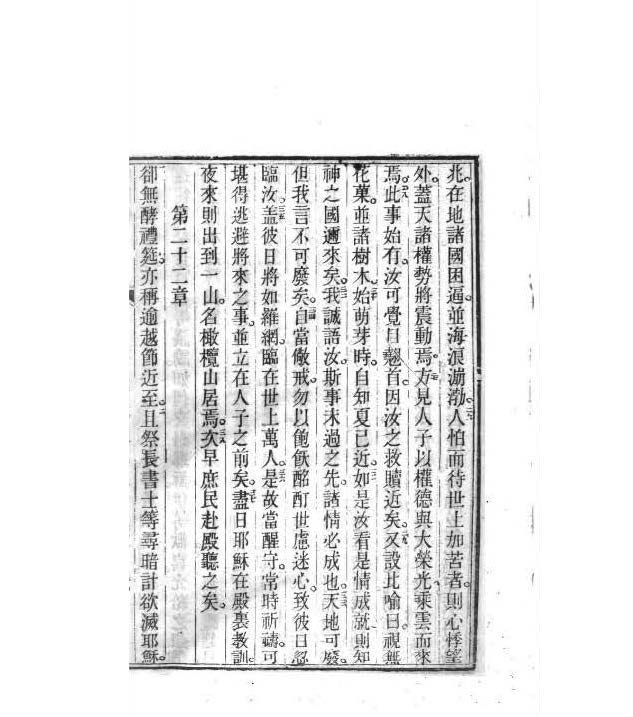 兆。在地諸國困逼。並海浪漰渤。人怕而待世上加苦者。則心悸望
外。蓋天諸權勢將震動焉。方見人子以權德與大榮光。乘雲而來
焉。此事始有。汝可覺目翹首。因汝之救贖近矣。又設此喻曰。視無
花菓。並諸樹木。始萌芽時。自知夏已近。如是汝看是情成就。則知
神之國邇來矣。我誠語汝。斯事未過之先。諸情必成也。天地可廢。
但我言不可廢矣。自當儆戒。勿以飽飫酩酊世慮迷心。致彼日忽
臨汝。蓋彼日將如羅網。臨在世上萬人。是故當醒守。常時祈禱。可
堪得逃避將來之事。並立在人子之前矣。盡日耶穌在殿裏教訓。
夜來則出到一山。名橄欖山居焉。次早庶民赴殿聽之矣。
第二十二章
卻無酵禮筵。亦稱逾越節近至。且祭長書士等。尋暗計欲滅耶穌。